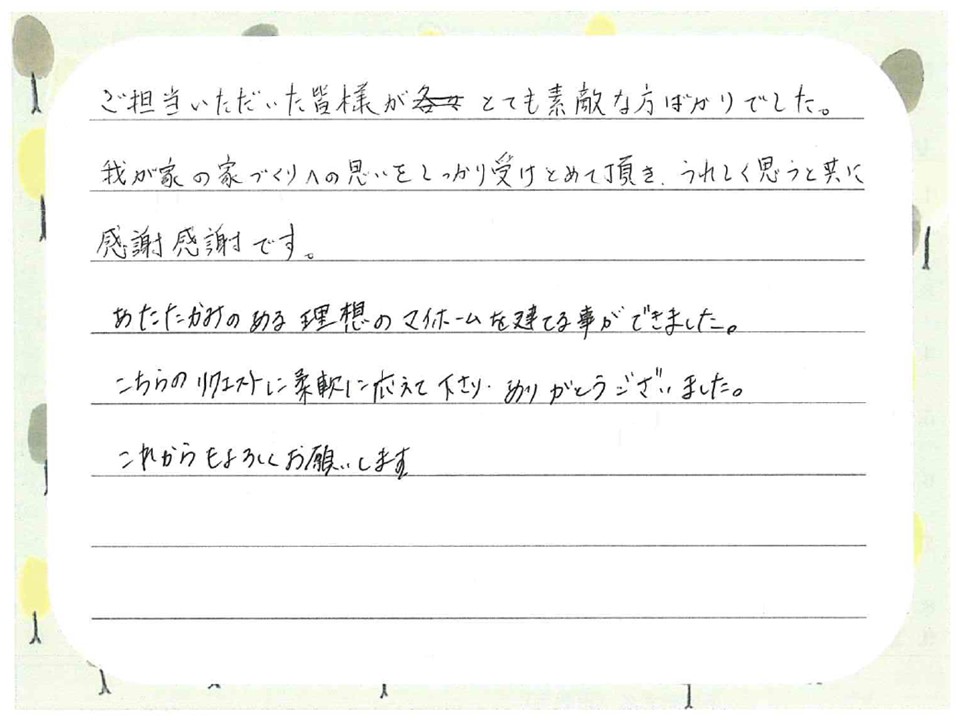 ご担当いただいた皆様が とても素敵な方ばかりでした。
我が家の家づくりへの思いをしっかり受けとめて頂き、うれしく思うと共に
感謝感謝です。
あたたかみのある理想のマイホームを建てる事ができました。
こちらのリクエストに柔軟に応えて下さり、ありがとうございました。
これからもよろしくお願いします